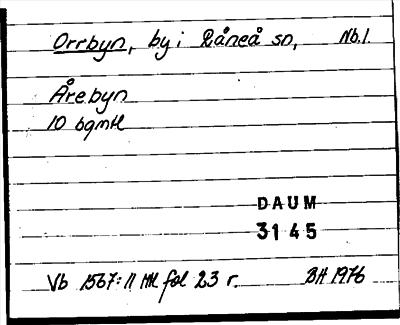 Orrbyn, by i Råneå sn, Nb.l.
Årebyn
10 bgmtl
DAUM
3145
Vb 1567:11 Ml fol 23 r. BH 1976